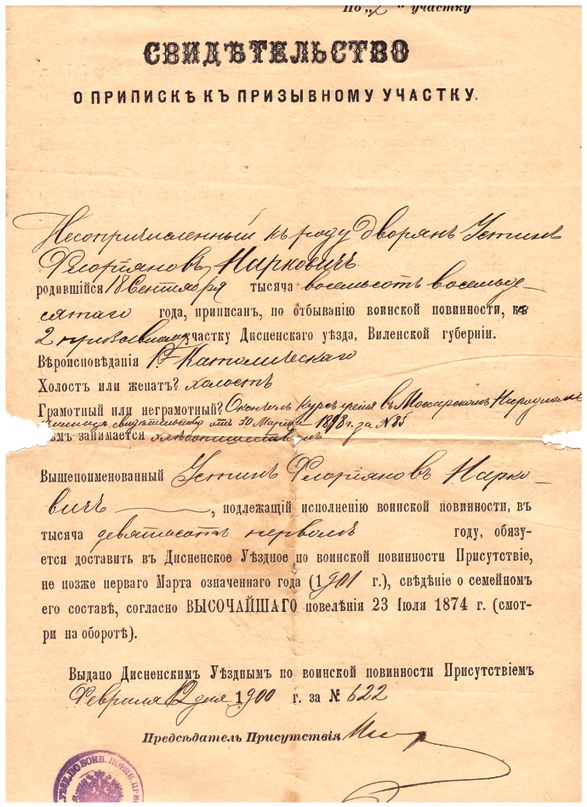 По „2“ участку
СВИДѢТЕЛЬСТВО
О ПРИПИСКѢ КЪ ПРИЗЫВНОМУ УЧАСТКУ.
Несопричисленный къ роду дворянъ Устинъ
Флоріяновъ Нарковичъ
родившійся 18 Сентября тысяча восемьсотъ восемьде-
сятаго года, приписанъ, по отбыванію воинской повинности, къ
2 призывному участку Дисненскаго уѣзда, Виленской губерніи.
Вѣроисповѣданія Р-Католическаго
Холостъ или женатъ? холостъ
Грамотный или неграмотный? Окончилъ курсъ ученія въ Мосарскомъ Народномъ
училищѣ свидѣтельство отъ 30 Марта 1898 г. за № 85
Чѣмъ занимается хлѣбопашествомъ
Вышепоименованный Устинъ Флоріяновъ Нарко-
вичъ, подлежащій исполненію воинской повинности, въ
тысяча девятьсотъ первомъ году, обязу-
ется доставить въ Дисненское Уѣздное по воинской повинности Присутствіе,
не позже перваго Марта означеннаго года (1901 г.), свѣдѣніе о семейномъ
его составѣ, согласно ВЫСОЧАЙШАГО повелѣнія 23 Іюля 1874 г. (смот-
ри на оборотѣ).
Выдано Дисненскимъ Уѣзднымъ по воинской повинности Присутствіемъ
Февраля 12 дня 1900 г. за № 622
Предсѣдатель Присутствія
УѢЗД. ПО ВОИН. ПОВИН. ПРИ